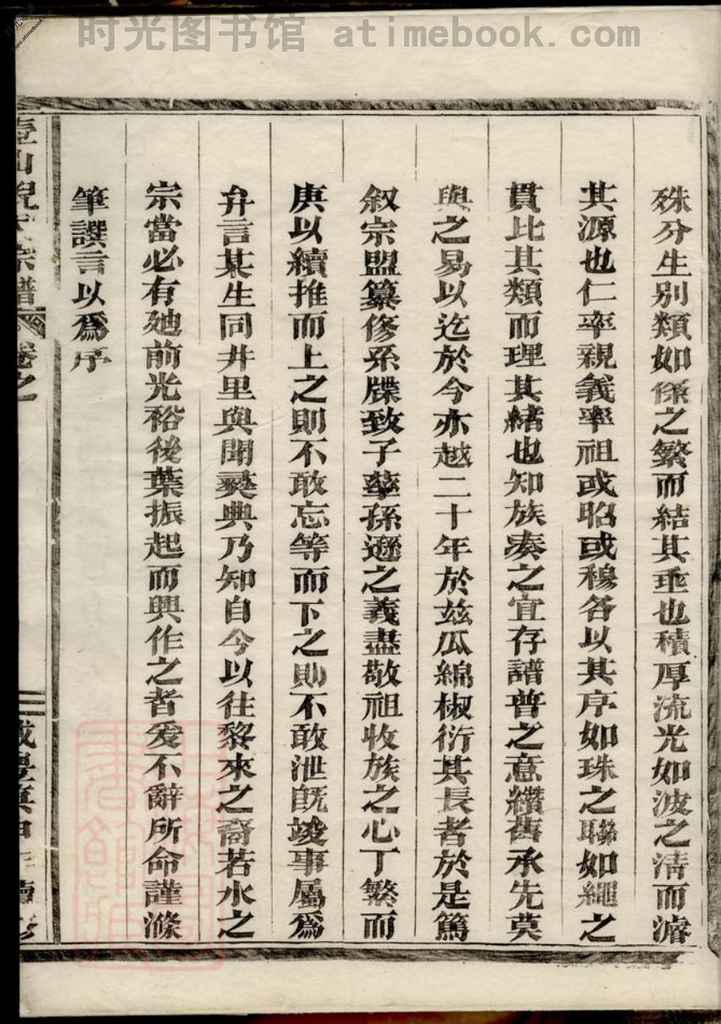 时光图书馆 atimebook.com
殊分生别類如係之繁而結其垂也積厚流光如波之清而濬
其源也仁率親義率祖或昭或穆各以其序如珠之聯如繩之
貫比其類而理其緒也知族湊之宜存譜普之意纘舊承先莫
與之易以迄於今亦越二十年於兹瓜綿椒衍其長者於是篤
叙宗盟纂修系牒致子孳孫遜之義盡敬祖收族之心丁繁而
庚以續推而上之則不敢忘等而下之則不敢泄旣竣事屬爲
弁言某生同井里與聞彜典乃知自今以往黎來之裔若水之
宗當必有𫐐前光裕後葉振起而興作之者爰不辭所命謹滌
筆譔言以爲序
壺山倪氏宗譜 卷之一
咸豐庚申年續修